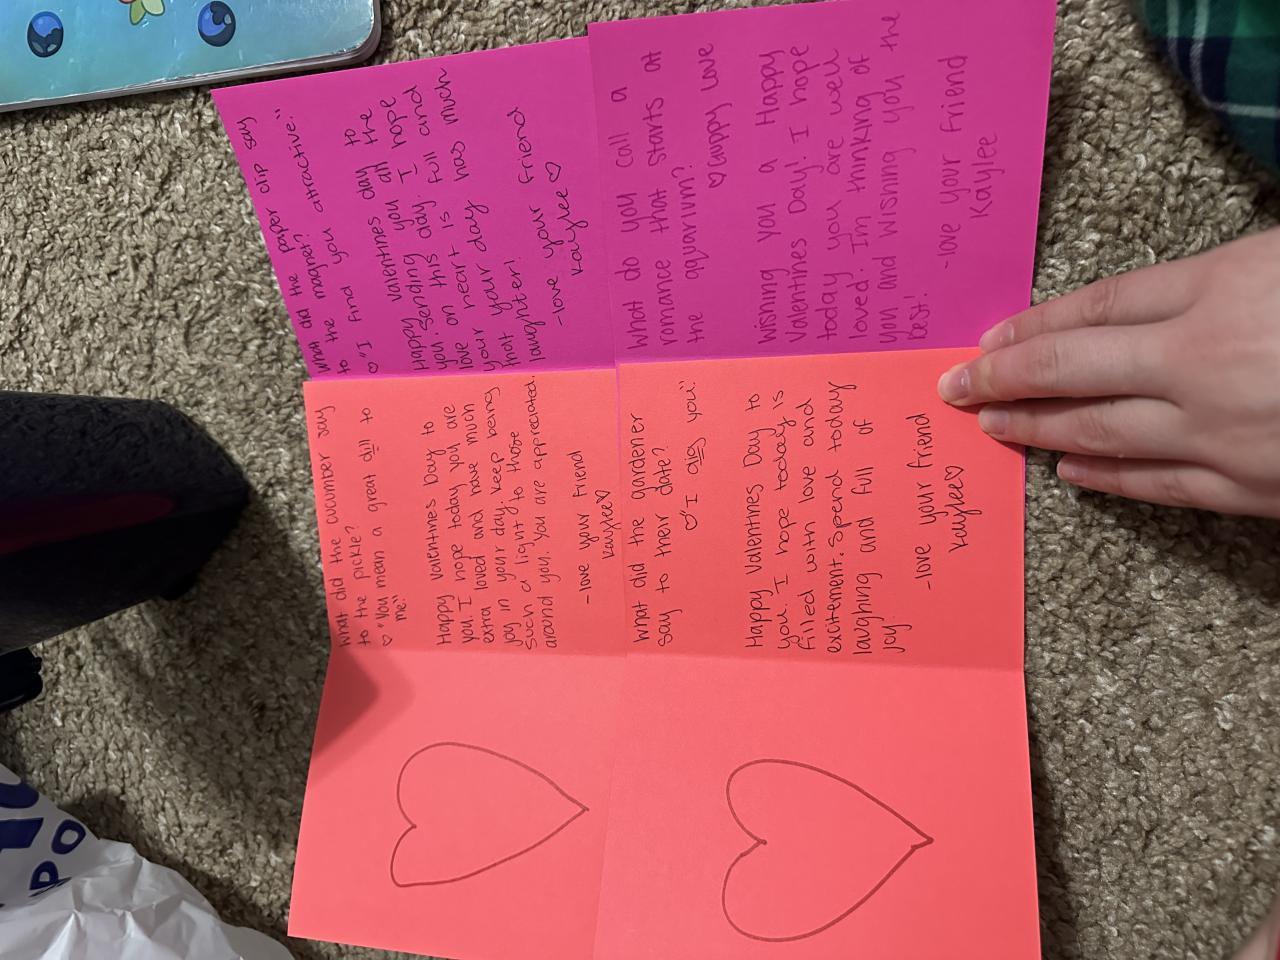 What did the paper clip say
to the magnet?
♡"I find you attractive."
Happy Valentines day to
you. Sending you all the
love on this day. I hope
your heart is full and
your your day has much
that
laughter!
-love your friend
Kaylee ♡
What do you call a
romance that starts at
the aquarium?
♡ Guppy Love
Wishing you a Happy
Valentines Day! I hope
today you are well
loved. I'm thinking of
you and wishing you the
best!
-love your friend
Kaylee
What did the cucumber say
to the pickle?
♡ "You mean a great dill to
me"
Happy Valentines Day to
you. I hope today you are
extra loved and have much
joy in your day. Keep being
such a light to those
around you. You are appreciated.
-love your friend
Kaylee♡
What did the gardener
say to their date?
♡"I dig you."
Happy Valentines Day to
you. I hope today is
filled with love and
excitement. Spend today
laughing and full of
joy.
-love your friend
Kaylee♡